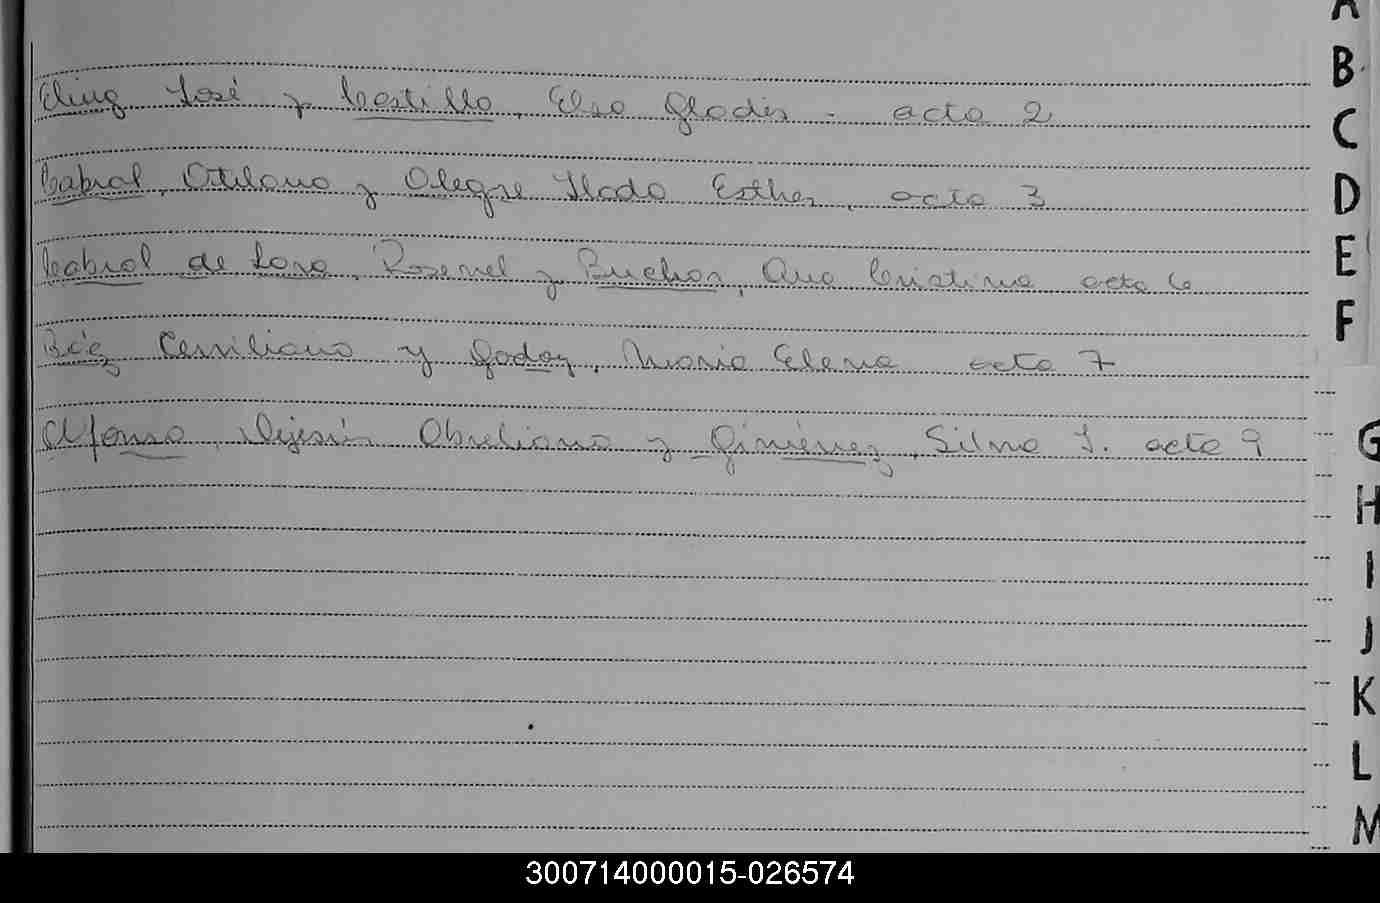 José y Castillo, Elsa Gladis - acta 2
Cabral, Otilano y Alegre Ilada Esther, acta 3
Cabral de Lara, Rosenel y Buchar, Ana Cristina acta 6
Báez y Godoy, María Elena acta 7
Alfonso, Aureliano y Giménez, Silna I. acta 9
A
B
C
D
E
F
G
H
I
J
K
L
M
300714000015-026574